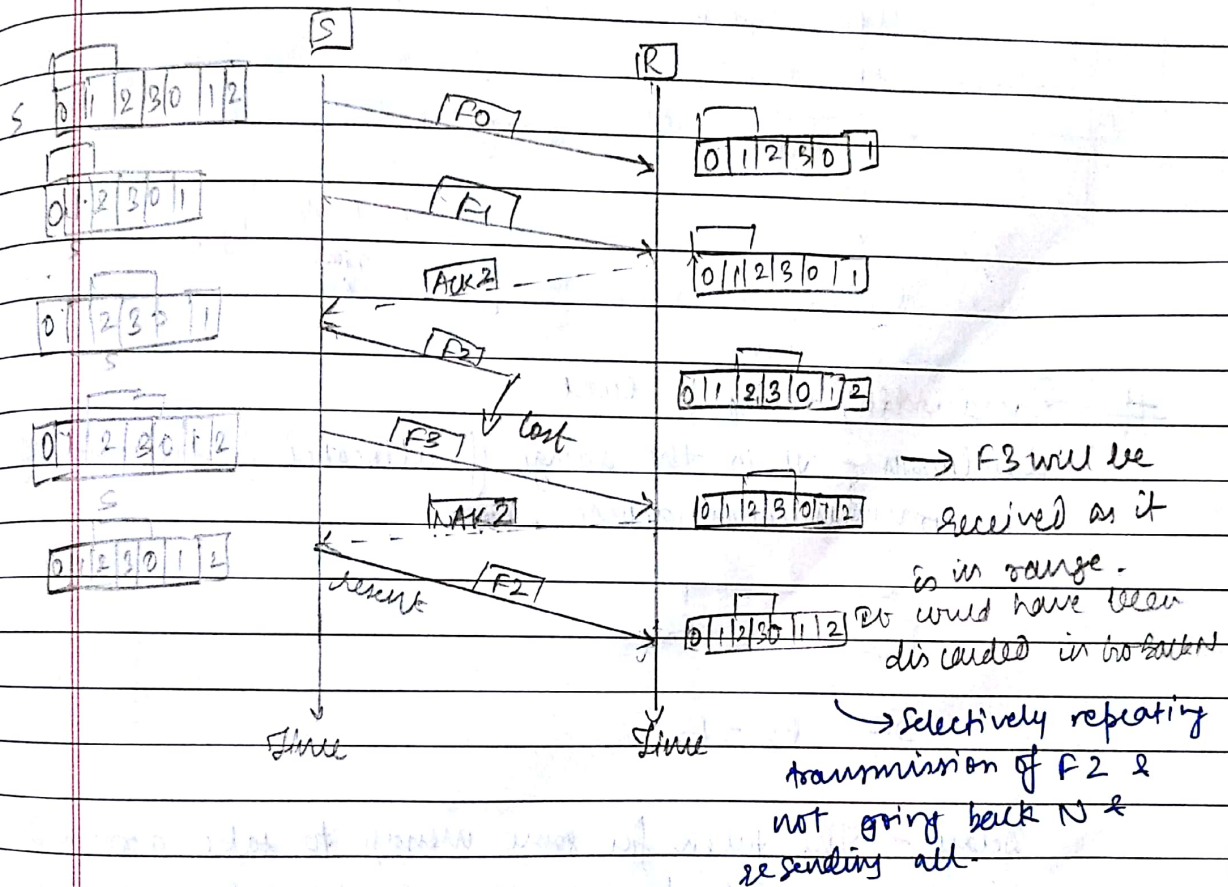 S
R
S 0 1 2 3 0 1 2
F0
0 1 2 3 0 1
0 1 2 3 0 1
F1
ACK2
0 1 2 3 0 1
0 1 2 3 0 1
F2
0 1 2 3 0 1 2
S
lost
0 1 2 3 0 1 2
F3
→ F3 will be
NAK2
0 1 2 3 0 1 2
received as it
S
is in range.
0 1 2 3 0 1 2
resent
F2
0 1 2 3 0 1 2
It would have been
discarded in Go Back N
Time
Time
→ Selectively repeating
transmission of F2 &
not going back N &
resending all.